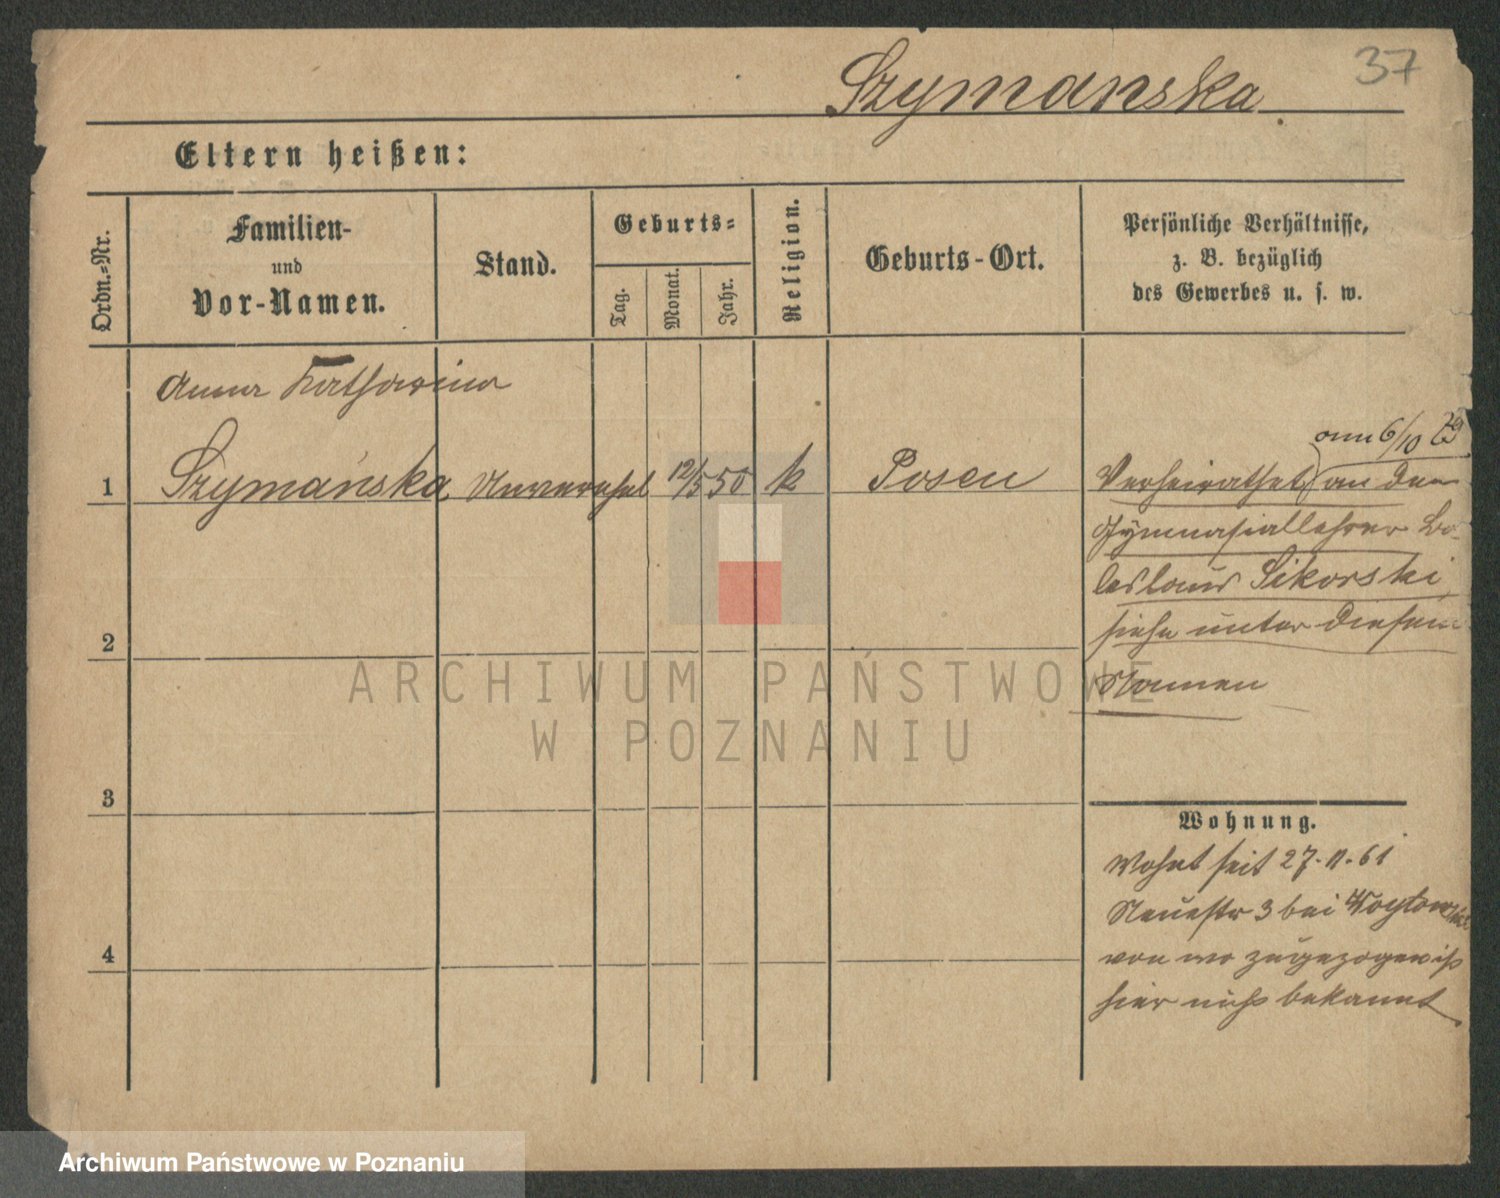 37
Szymanska
Eltern heißen:
Ordn.=Nr.
Familien-
und
Vor-Namen.
Stand.
Geburts=
Tag.
Monat.
Jahr.
Religion.
Geburts-Ort.
Persönliche Verhältnisse,
z. B. bezüglich
des Gewerbes u. s. w.
Anna Katharina
1 Szymańska Unverehel 12/5 50 k Posen
am 6/10 79
Verheirathet an den
Gymnasiallehrer Bo-
leslaus Sikorski
siehe unter diesem
Namen
2
3
4
Wohnung.
Wohnt seit 27.11.61
Neuestr 3 bei
von wo zugezogen ist
hier nicht bekannt
ARCHIWUM PAŃSTWOWE
W POZNANIU
Archiwum Państwowe w Poznaniu